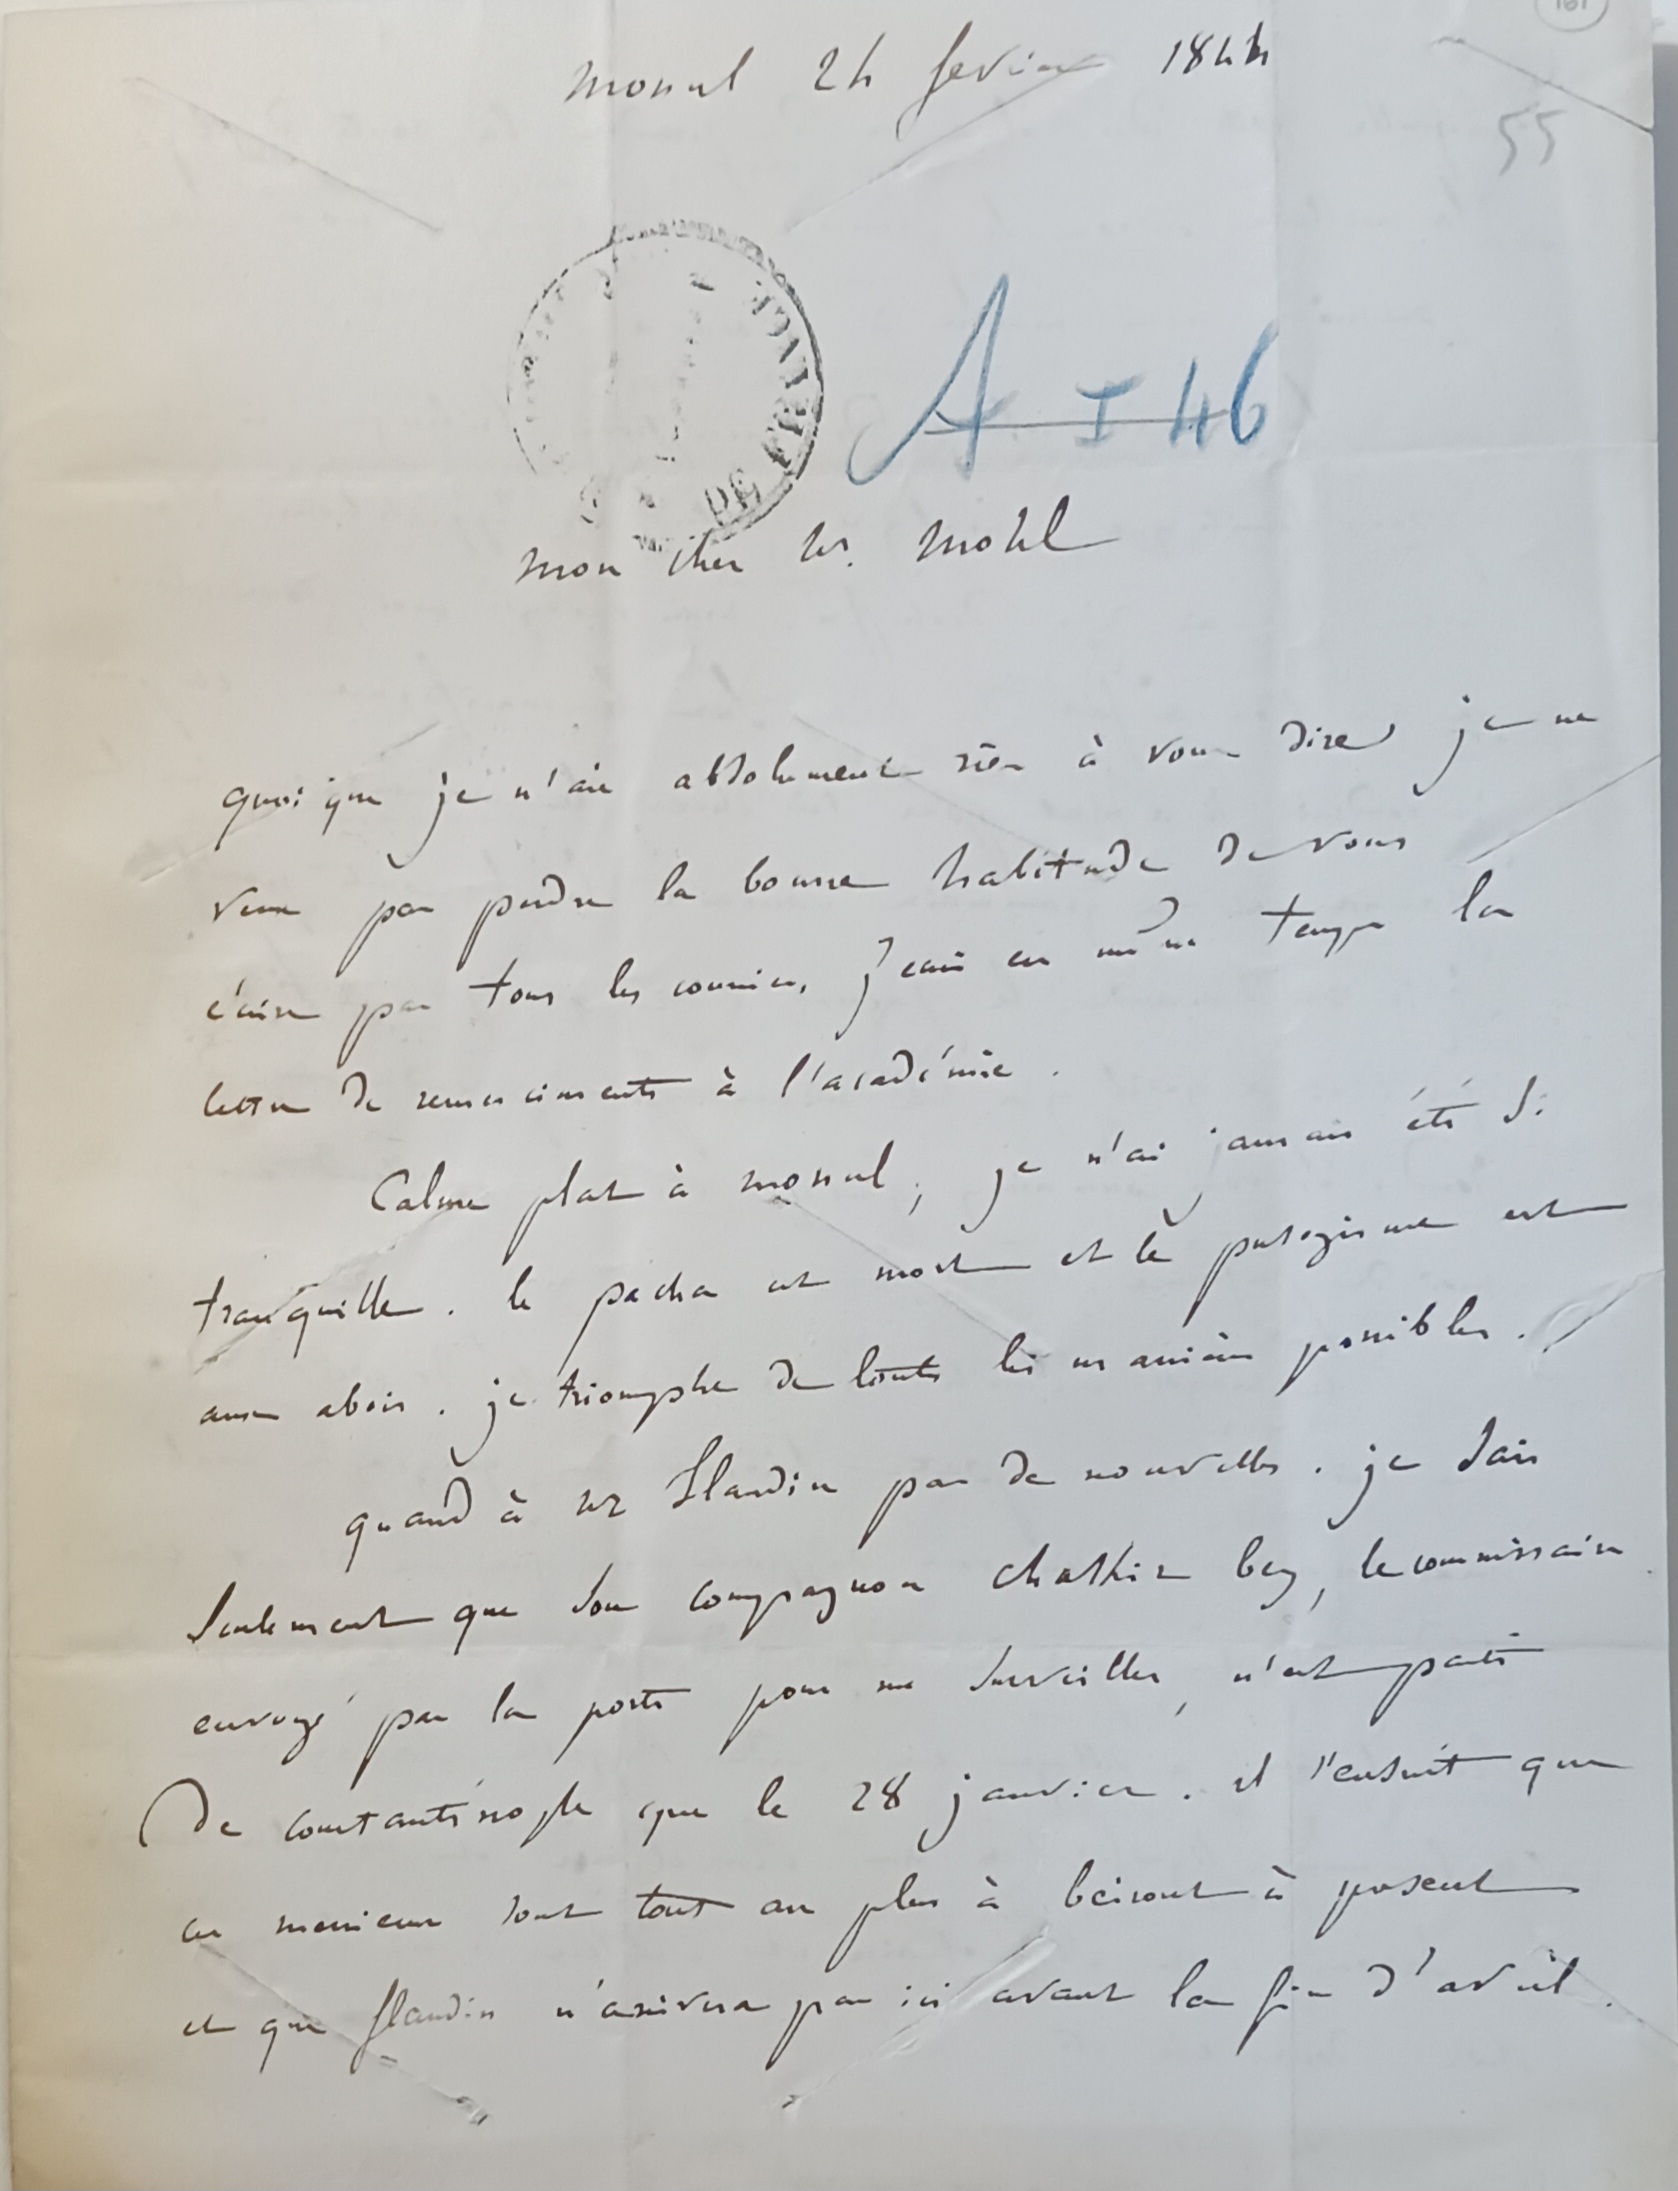 161
mossul 24 fevrier 1844
55
A I 46
mon cher Mr. Mohl
quoique je n'aie absolument rien à vous dire je ne
veux pas perdre la bonne habitude de vous
écrire par tous les courriers, j'écris en même temps la
lettre de remerciments à l'académie.
Calme plat à mossul, je n'ai jamais été si
tranquille. le pacha est mort et le
est
aux abois. je triomphe de toutes les manières possibles.
quand à Mr Flandin pas de nouvelles. je sais
seulement que son compagnon bey, le commissaire
envoyé par la porte pour me surveiller, n'est parti
De constantinople que le 28 janvier. il s'ensuit que
ces messieurs sont tout au plus à beirout à présent
et que flandin n'arrivera pas ici avant la fin d'avril.